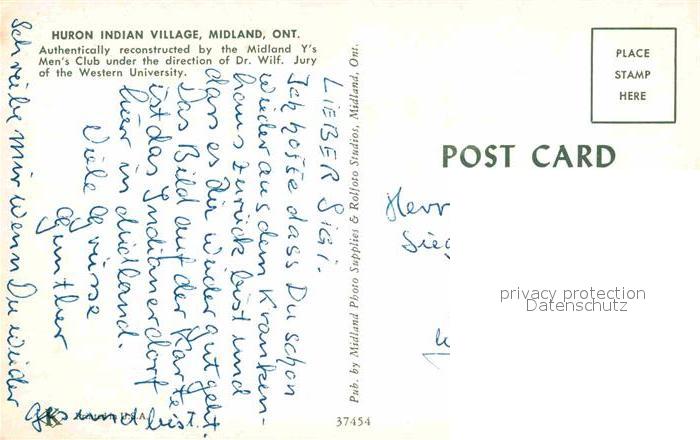 HURON INDIAN VILLAGE, MIDLAND, ONT.
Authentically reconstructed by the Midland Y's
Men's Club under the direction of Dr. Wilf. Jury
of the Western University.
LIEBER Sigi!
Ich hoffe dass Du schon
wieder aus dem Kranken-
haus zurück bist und
dass es dir wieder gut geht.
Das Bild auf der Karte
ist das Indianerdorf
hier in Midland.
Viele Grüsse
Günther
Schreibe mir wenn Du wieder
gesund bist.
Pub. by Midland Photo Supplies & Rolfoto Studios, Midland, Ont.
37454
PLACE
STAMP
HERE
POST CARD
Herr
privacy protection
Datenschutz